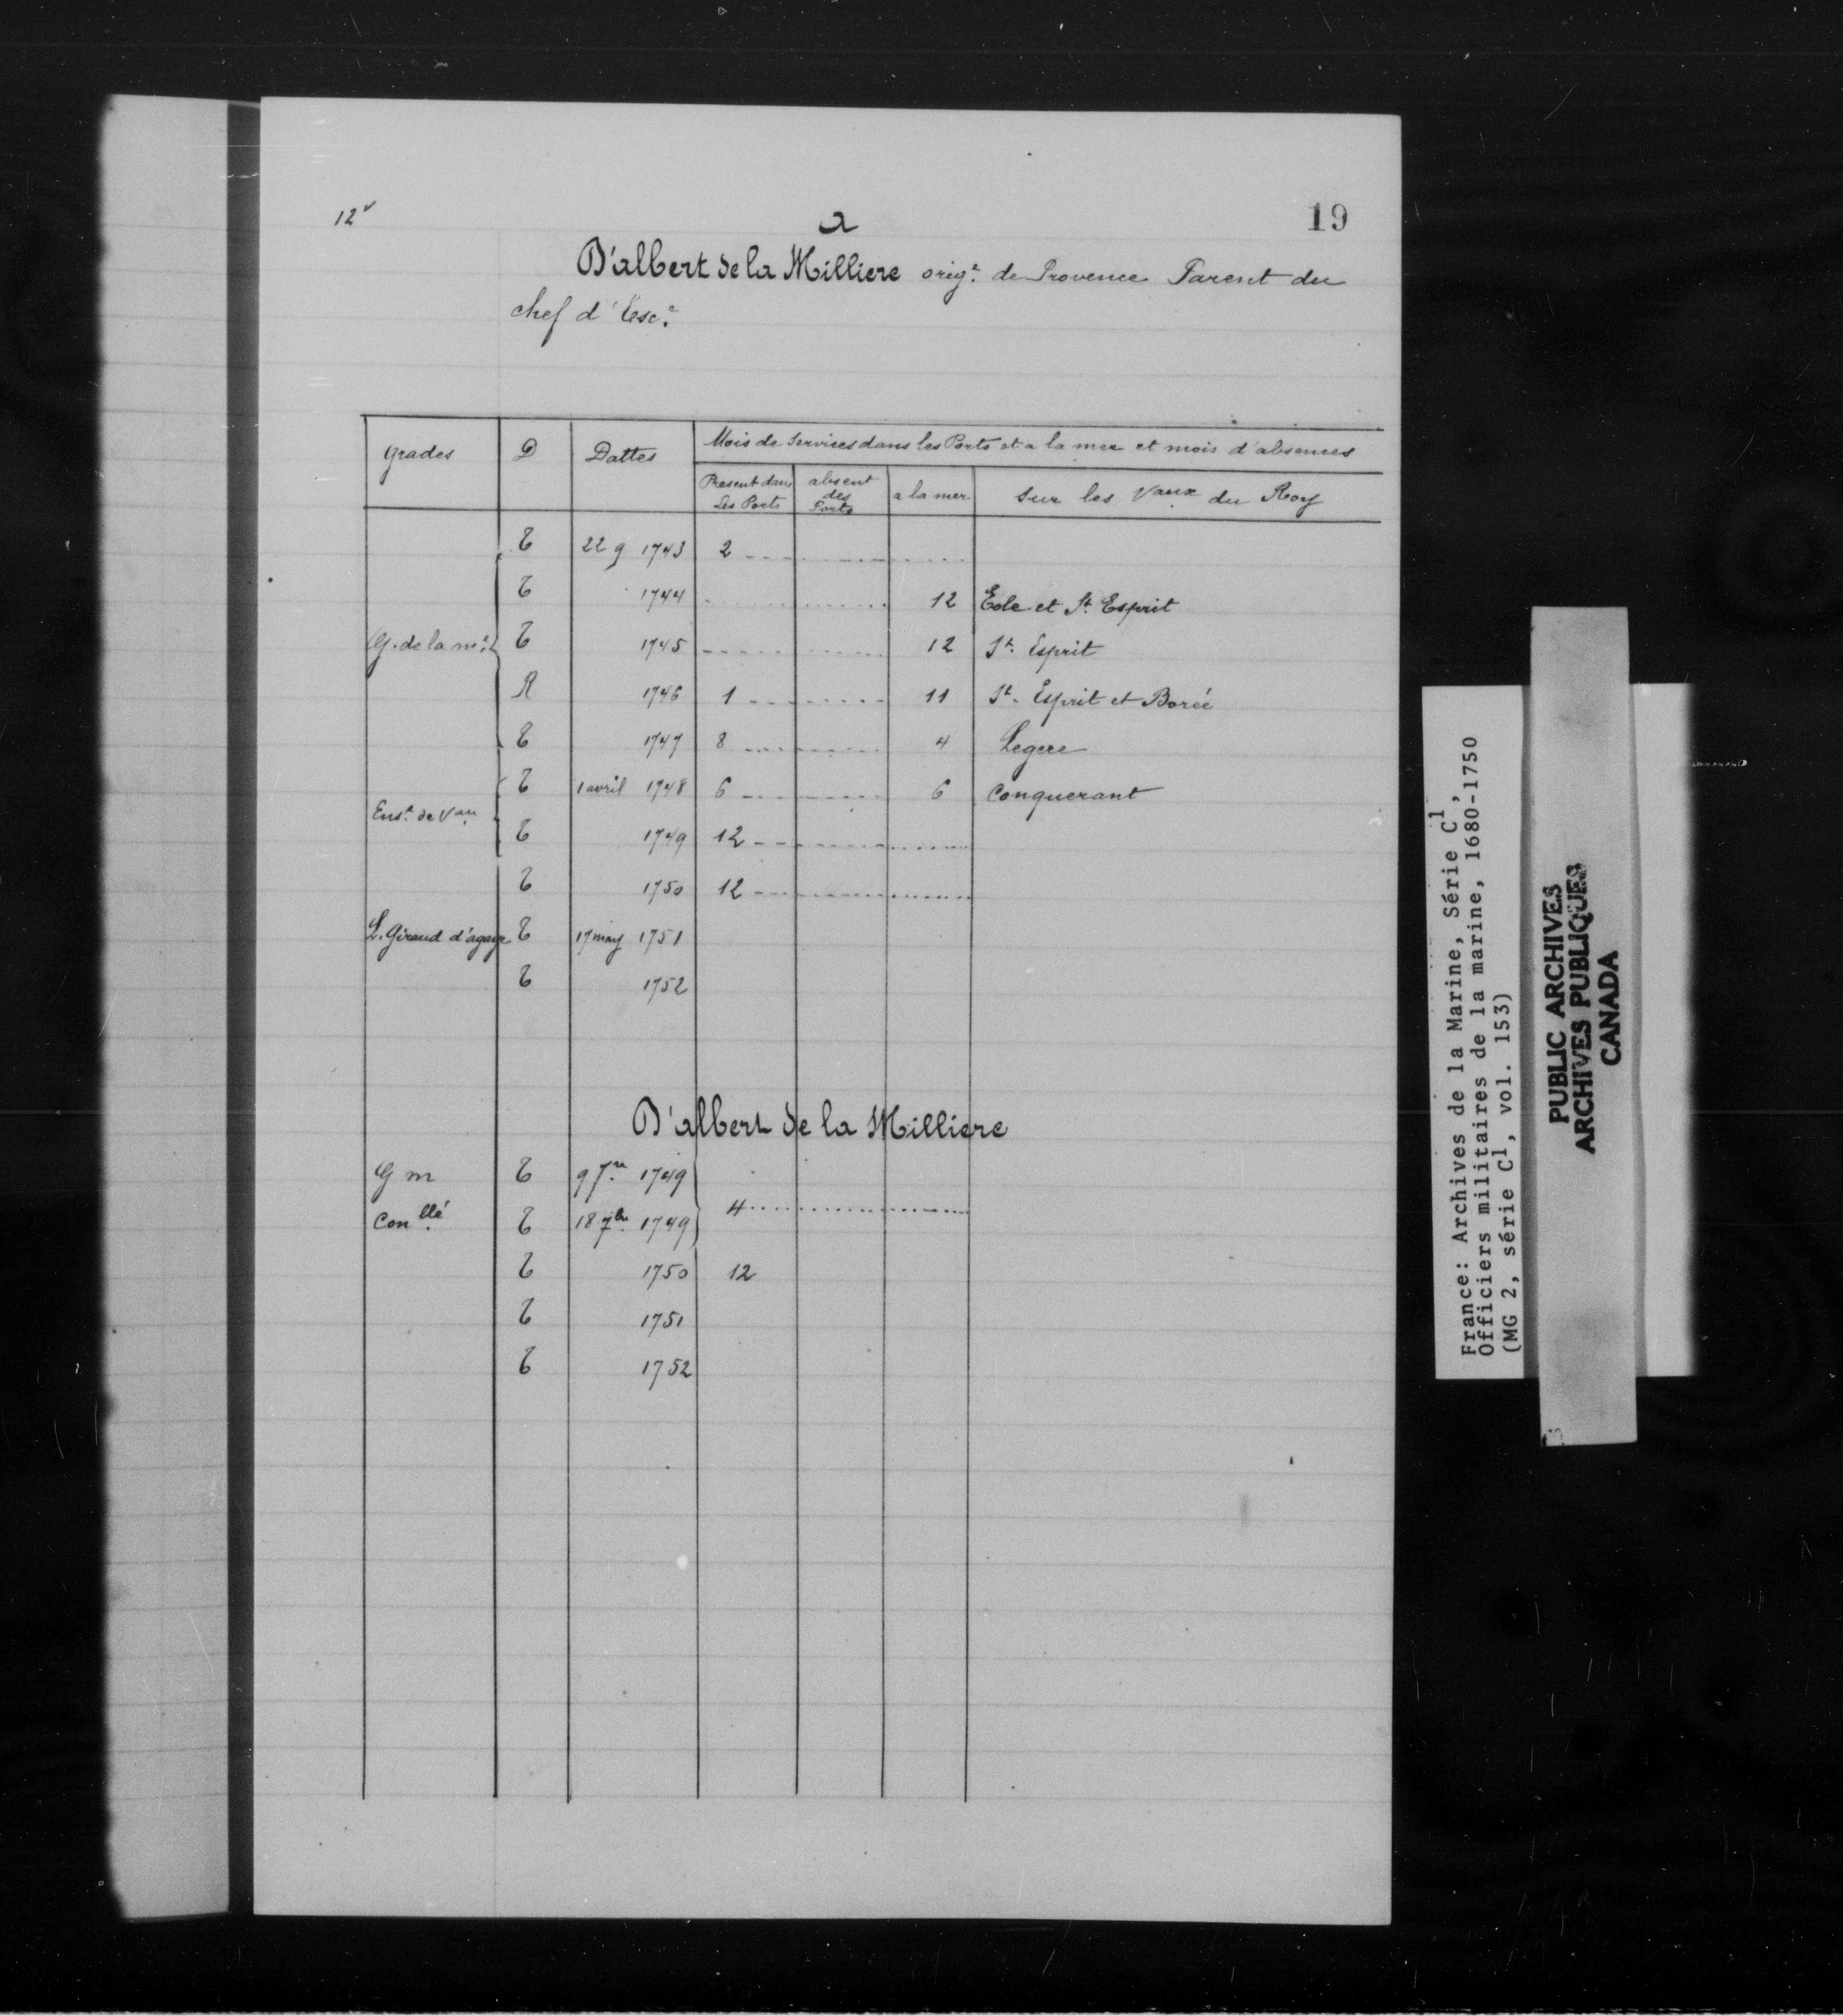 12v
a
19
D'albert de la Milliere orig.e de Provence Parent du
chef d'Esc.e
grades D Dattes Mois de services dans les Ports et a la mer et mois d'absences
Present dans Les Ports absent des Ports a la mer Sur les Vaux du Roy
T 22 9 1743 2
T 1744 12 Eole et St. Esprit
G. de la m.e T 1745 12 St. Esprit
R 1746 1 11 St. Esprit et Boréé
T 1747 8 4 Legere
Ens.e de Vau T 1 avril 1748 6 6 Conquerant
T 1749 12
T 1750 12
T 17 may 1751
T 1752
D'albert de la Milliere
G m T 1749
Con.llé T 18 7bre 1749 4
T 1750 12
T 1751
T 1752
France: Archives de la Marine, Série C1,
Officiers militaires de la marine, 1680-1750
(MG 2, série C1, vol. 153)
PUBLIC ARCHIVES
ARCHIVES PUBLIQUES
CANADA